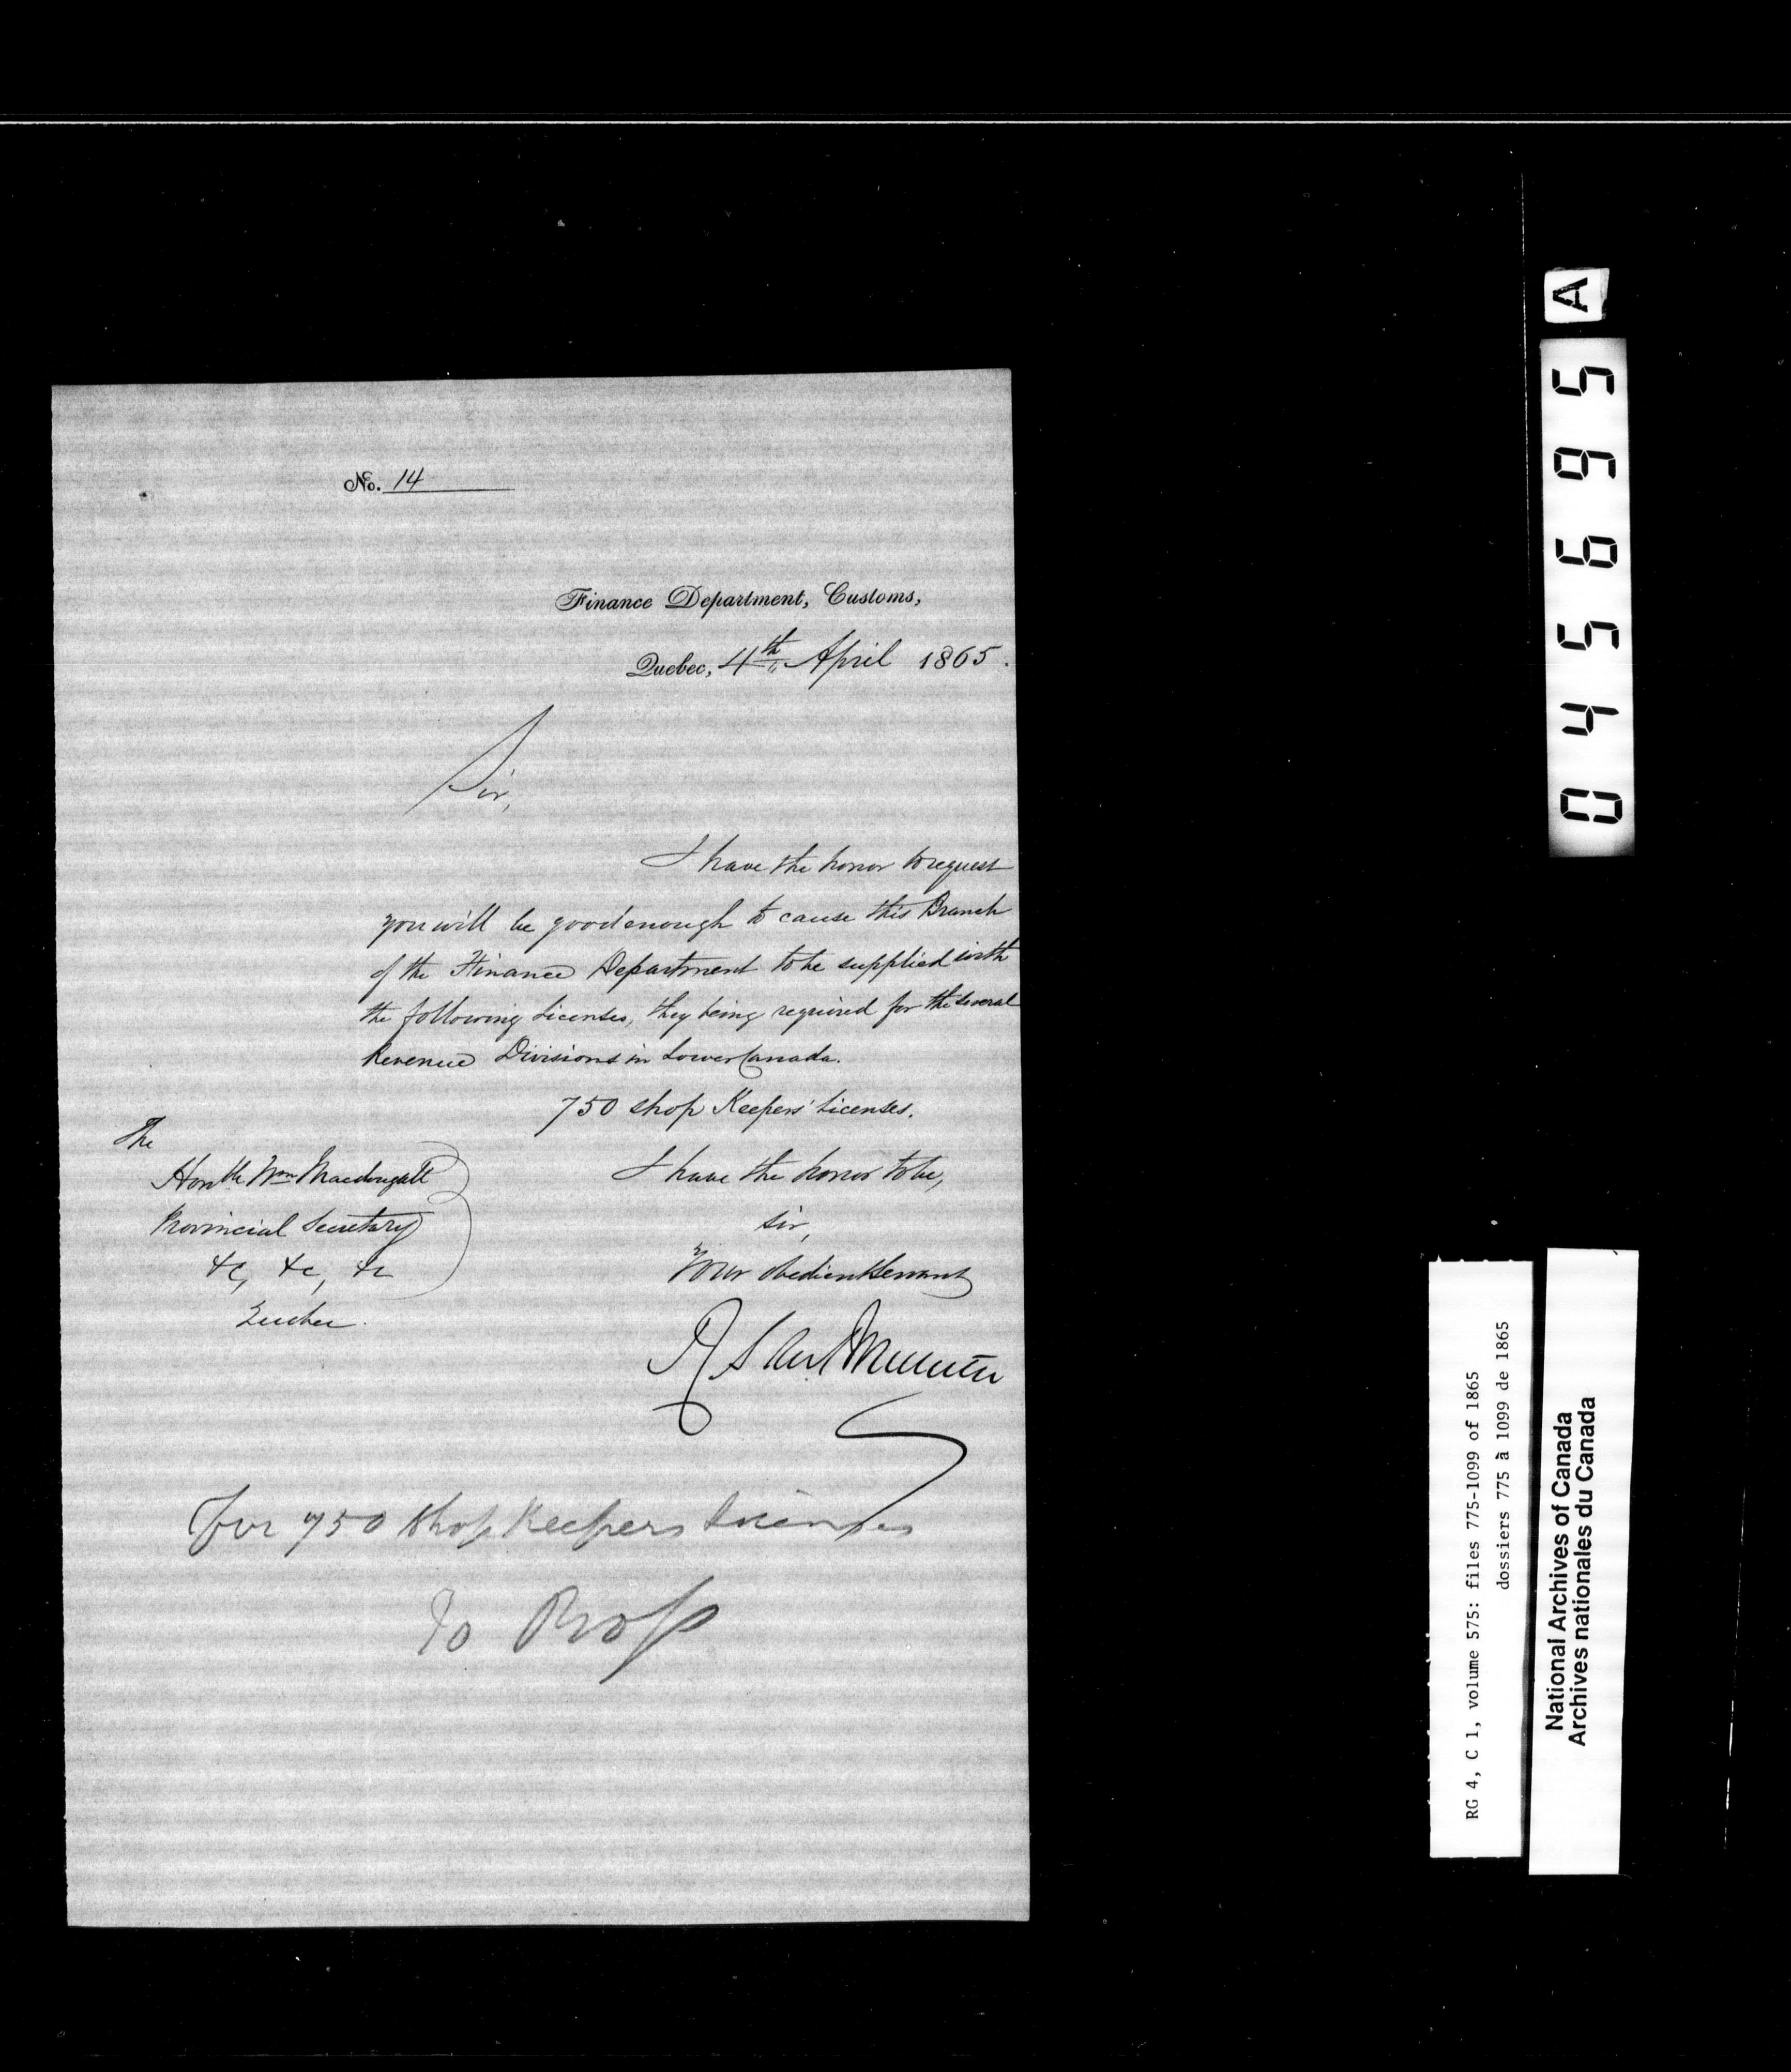 No. 14
Finance Department, Customs,
Quebec, 4th April 1865.
Sir,
I have the honor to request
you will be good enough to cause this Branch
of the Finance Department to be supplied with
the following Licenses, they being required for the several
Revenue Divisions in Lower Canada.
750 shop Keepers' Licenses.
The
Honble Wm Macdougall
Provincial Secretary
&c, &c, &c
Quebec.
I have the honor to be,
Sir,
Your obedient Servant
For 750 Shop Keepers Licenses
A
045695
RG 4, C 1, volume 575: files 775-1099 of 1865
dossiers 775 à 1099 de 1865
National Archives of Canada
Archives nationales du Canada